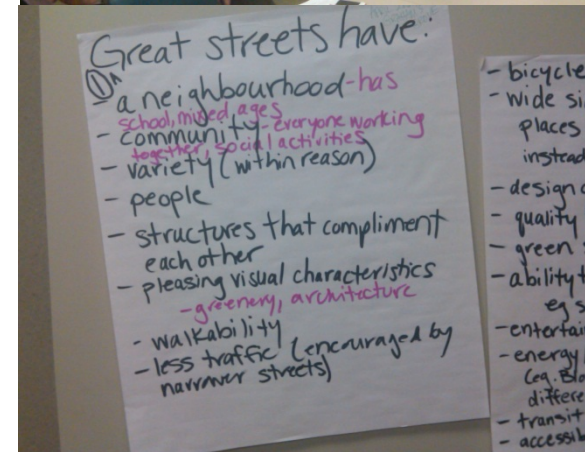 Great streets have:
①
- a neighbourhood - has
school, mixed ages
- community - everyone working
together, social activities
- variety (within reason)
- people
- structures that compliment
each other
- pleasing visual characteristics
- greenery, architecture
- walkability
- less traffic (encouraged by
narrower streets)
- bicycle
- wide si
places
instead
- design
- quality
- green
- ability
eg
- entertai
- energy
(eg. Blo
differe
- transit
- accessib